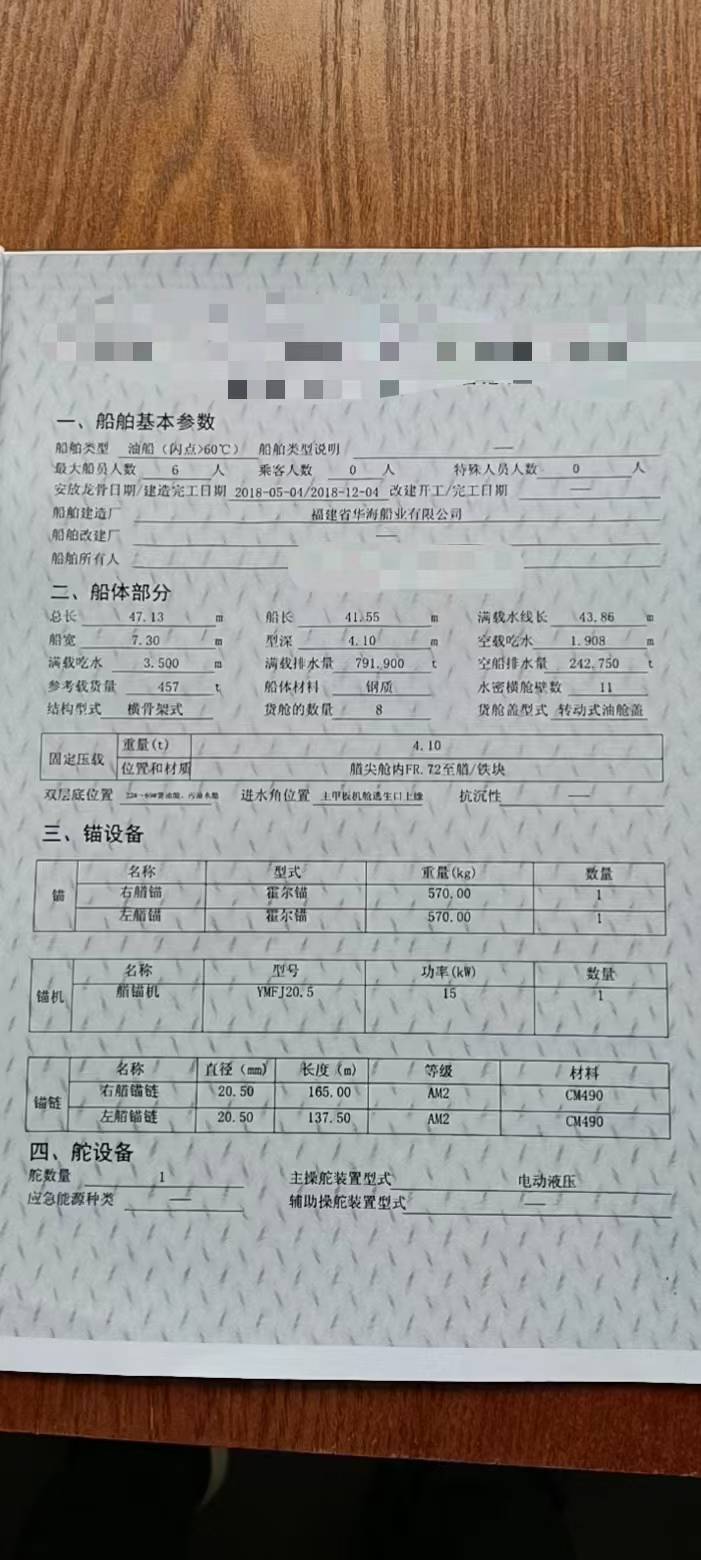 一、船舶基本参数
船舶类型 油船（闪点>60℃） 船舶类型说明 —
最大船员人数 6 人 乘客人数 0 人 特殊人员人数 0 人
安放龙骨日期/建造完工日期 2018-05-04/2018-12-04 改建开工/完工日期 —
船舶建造厂 福建省华海船业有限公司
船舶改建厂 —
船舶所有人
二、船体部分
总长 47.13 m 船长 41.55 m 满载水线长 43.86 m
船宽 7.30 m 型深 4.10 m 空载吃水 1.908 m
满载吃水 3.500 m 满载排水量 791.900 t 空船排水量 242.750 t
参考载货量 457 t 船体材料 钢质 水密横舱壁数 11
结构型式 横骨架式 货舱的数量 8 货舱盖型式 转动式油舱盖
固定压载 重量(t) 4.10
位置和材质 艏尖舱内FR.72至艏/铁块
双层底位置 进水角位置 主甲板机舱逃生口上缘 抗沉性 —
三、锚设备
锚 名称 型式 重量(kg) 数量
右艏锚 霍尔锚 570.00 1
左艏锚 霍尔锚 570.00 1
锚机 名称 型号 功率(kW) 数量
艏锚机 YMFJ20.5 15 1
锚链 名称 直径（mm） 长度（m） 等级 材料
右艏锚链 20.50 165.00 AM2 CM490
左艏锚链 20.50 137.50 AM2 CM490
四、舵设备
舵数量 1 主操舵装置型式 电动液压
应急能源种类 — 辅助操舵装置型式 —